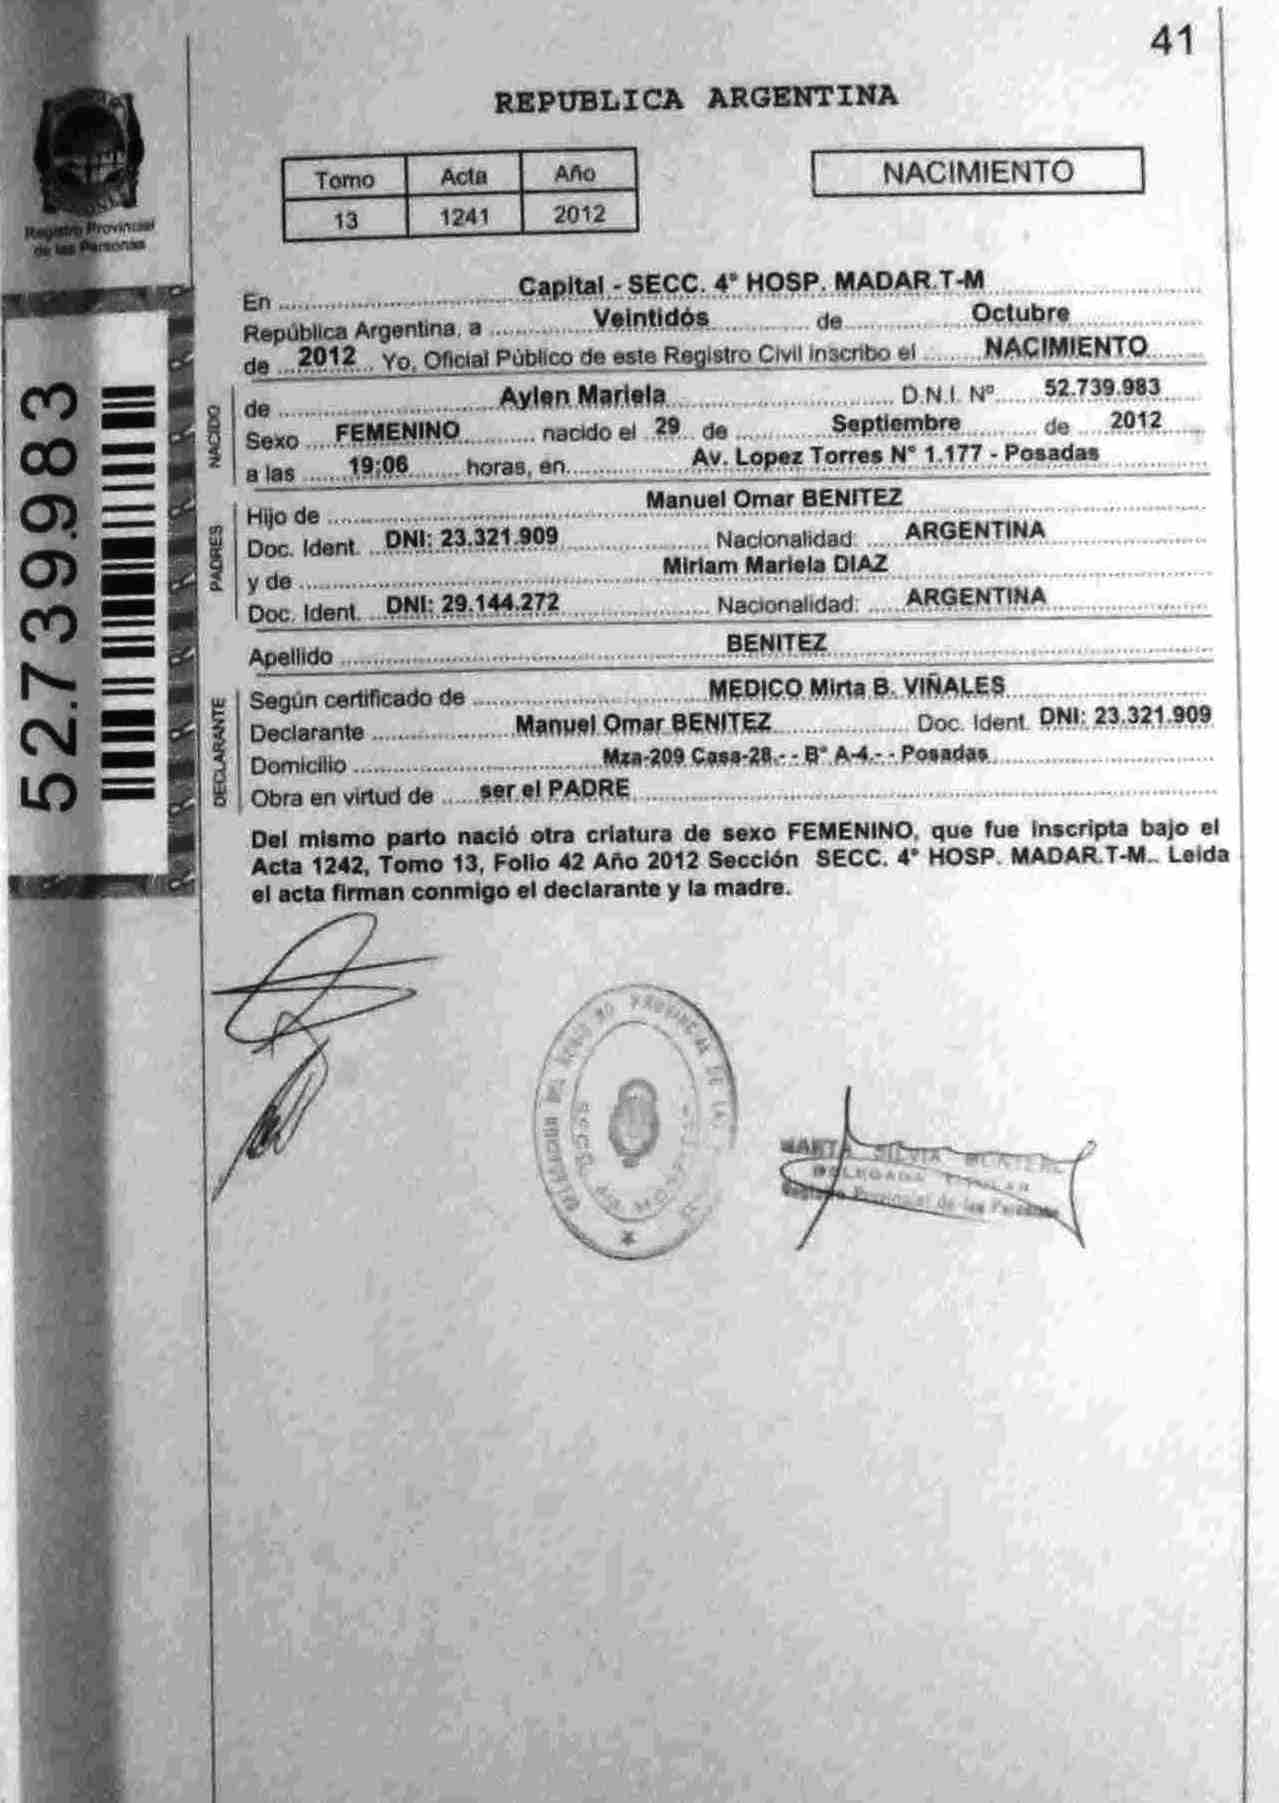 41
REPUBLICA ARGENTINA
Registro Provincial
de las Personas
Tomo Acta Año
13 1241 2012
NACIMIENTO
52.739.983
En Capital - SECC. 4° HOSP. MADAR.T-M
República Argentina, a Veintidós de Octubre
de 2012 Yo, Oficial Público de este Registro Civil inscribo el NACIMIENTO
NACIDO
de Aylen Mariela D.N.I. Nº 52.739.983
Sexo FEMENINO nacido el 29 de Septiembre de 2012
a las 19:06 horas, en Av. Lopez Torres N° 1.177 - Posadas
PADRES
Hijo de Manuel Omar BENITEZ
Doc. Ident. DNI: 23.321.909 Nacionalidad: ARGENTINA
y de Miriam Mariela DIAZ
Doc. Ident. DNI: 29.144.272 Nacionalidad: ARGENTINA
Apellido BENITEZ
DECLARANTE
Según certificado de MEDICO Mirta B. VIÑALES
Declarante Manuel Omar BENITEZ Doc. Ident. DNI: 23.321.909
Domicilio Mza-209 Casa-28.- - B° A-4.- - Posadas
Obra en virtud de ser el PADRE
Del mismo parto nació otra criatura de sexo FEMENINO, que fue inscripta bajo el
Acta 1242, Tomo 13, Folio 42 Año 2012 Sección SECC. 4° HOSP. MADAR.T-M.. Leida
el acta firman conmigo el declarante y la madre.
PROVINCIAL DE LAS
MARTA SILVIA
DELEGADA TITULAR
Registro Provincial de las Personas